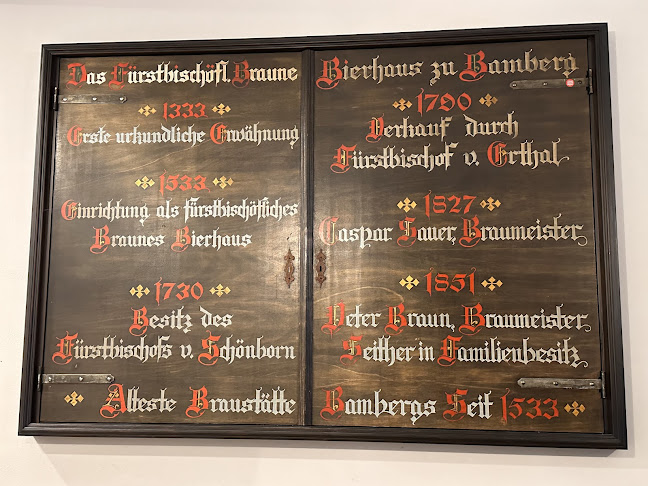 Das Fürstbischöfl. Braune
Bierhaus zu Bamberg
1333
Erste urkundliche Erwähnung
1533
Einrichtung als fürstbischöfliches
Braunes Bierhaus
1730
Besitz des
Fürstbischofs v. Schönborn
1790
Verkauf durch
Fürstbischof v. Erthal
1827
Caspar Sauer, Braumeister
1851
Peter Braun, Braumeister
Seither in Familienbesitz
Älteste Braustätte
Bambergs Seit 1533